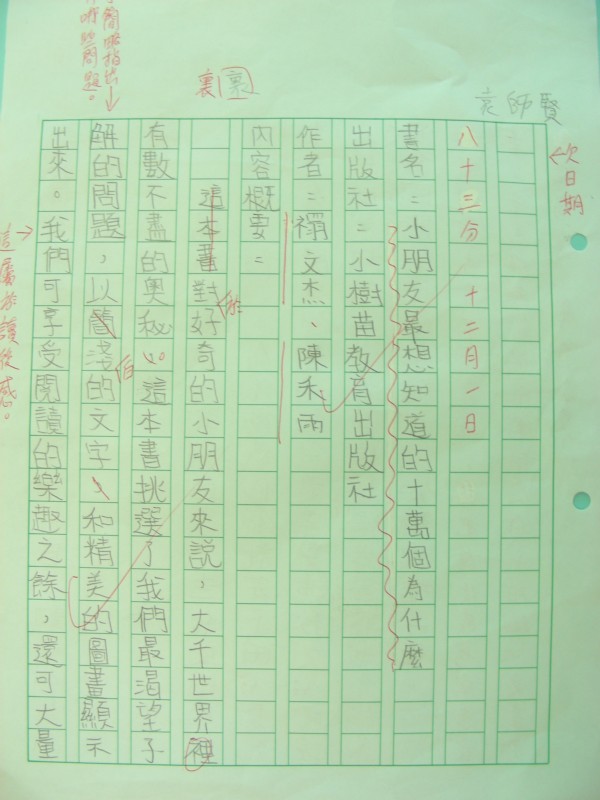 袁師賢
欠日期
八十三分 十二月一日
書名:小朋友最想知道的十萬個為什麼
出版社:小樹苗教育出版社
作者:禤文杰、陳禾雨
內容概要:
裏裏
這本書對於好奇的小朋友來說,大千世界裡
有數不盡的奧秘。這本書挑選了我們最渴望了
簡略指出
哪些問題。
解的問題,以淺白的文字、和精美的圖畫顯示
出來。我們可享受閱讀的樂趣之餘,還可大量
這屬於讀後感。